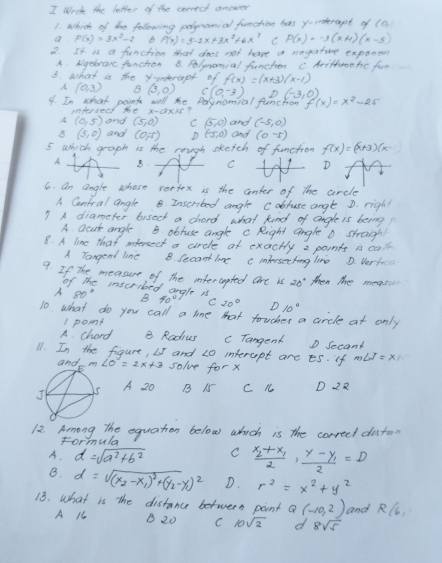 I Write the letter of the correct answer
1. Which of the following polynomial function has y-intercept of (0
a P(x) = 3x²-2 B P(x) = 5-2x+3x²+6x³ C P(x) = -3(x+1)(x-3)
2. It is a function that does not have a negative exponen
A. Algebraic function B. Polynomial function C Arithmetic fun
3. What is the y-intercept of f(x) = (x+3)(x-1)
A (0,3) B (3,0) C (0,-3) D (-3,0)
4. In what points will the Polynomial function f(x) = x²-25
intersect the x-axis?
A (0,5) and (5,0) C (5,0) and (-5,0)
B (5,0) and (0,5) D (-5,0) and (0-5)
5 Which graph is the rough sketch of function f(x) = (x+3)(x-
A B. C D
6. An angle whose vertex is the center of the circle
A Central angle B Inscribed angle C obtuse angle D. right
7 A diameter bisect a chord what kind of angle is being
A. acute angle B obtuse angle C Right angle D straight
8. A line that intersect a circle at exactly 2 points is calle
A Tangent line B. Secant line C intersecting line D. Vertica
9. If the measure of the intercepted arc is 20° then the measur
of the inscribed angle is
A 80° B 40° C 20° D 10°
10. What do you call a line that touches a circle at only
1 point
A. Chord B Radius C Tangent D Secant
11. In the figure, LI and LO intercept arc ES. if mLI = x
and m LO = 2x+3 solve for x
E
J S
O
A 20 B 15 C 16 D 22
12 Among the equation below which is the correct distan
Formula
A. d = √a²+b² C x₂+x₁/2, y-y₁/2 = D
B. d = √(x₂-x₁)²+(y₂-y₁)² D. r² = x²+y²
13. What is the distance between point Q (-10,2) and R (6,
A 16 B 20 C 10√2 d 8√5